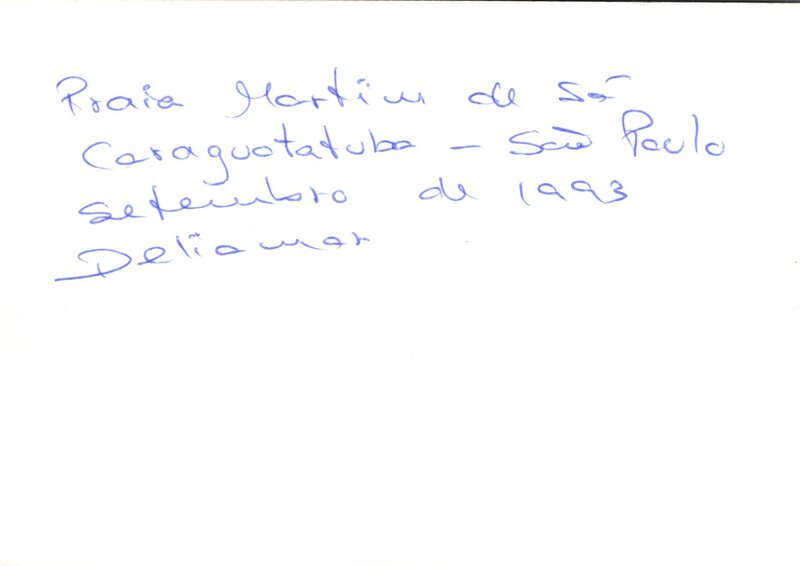 Praia Martim de Sá
Caraguatatuba – São Paulo
Setembro de 1993
Deliamar